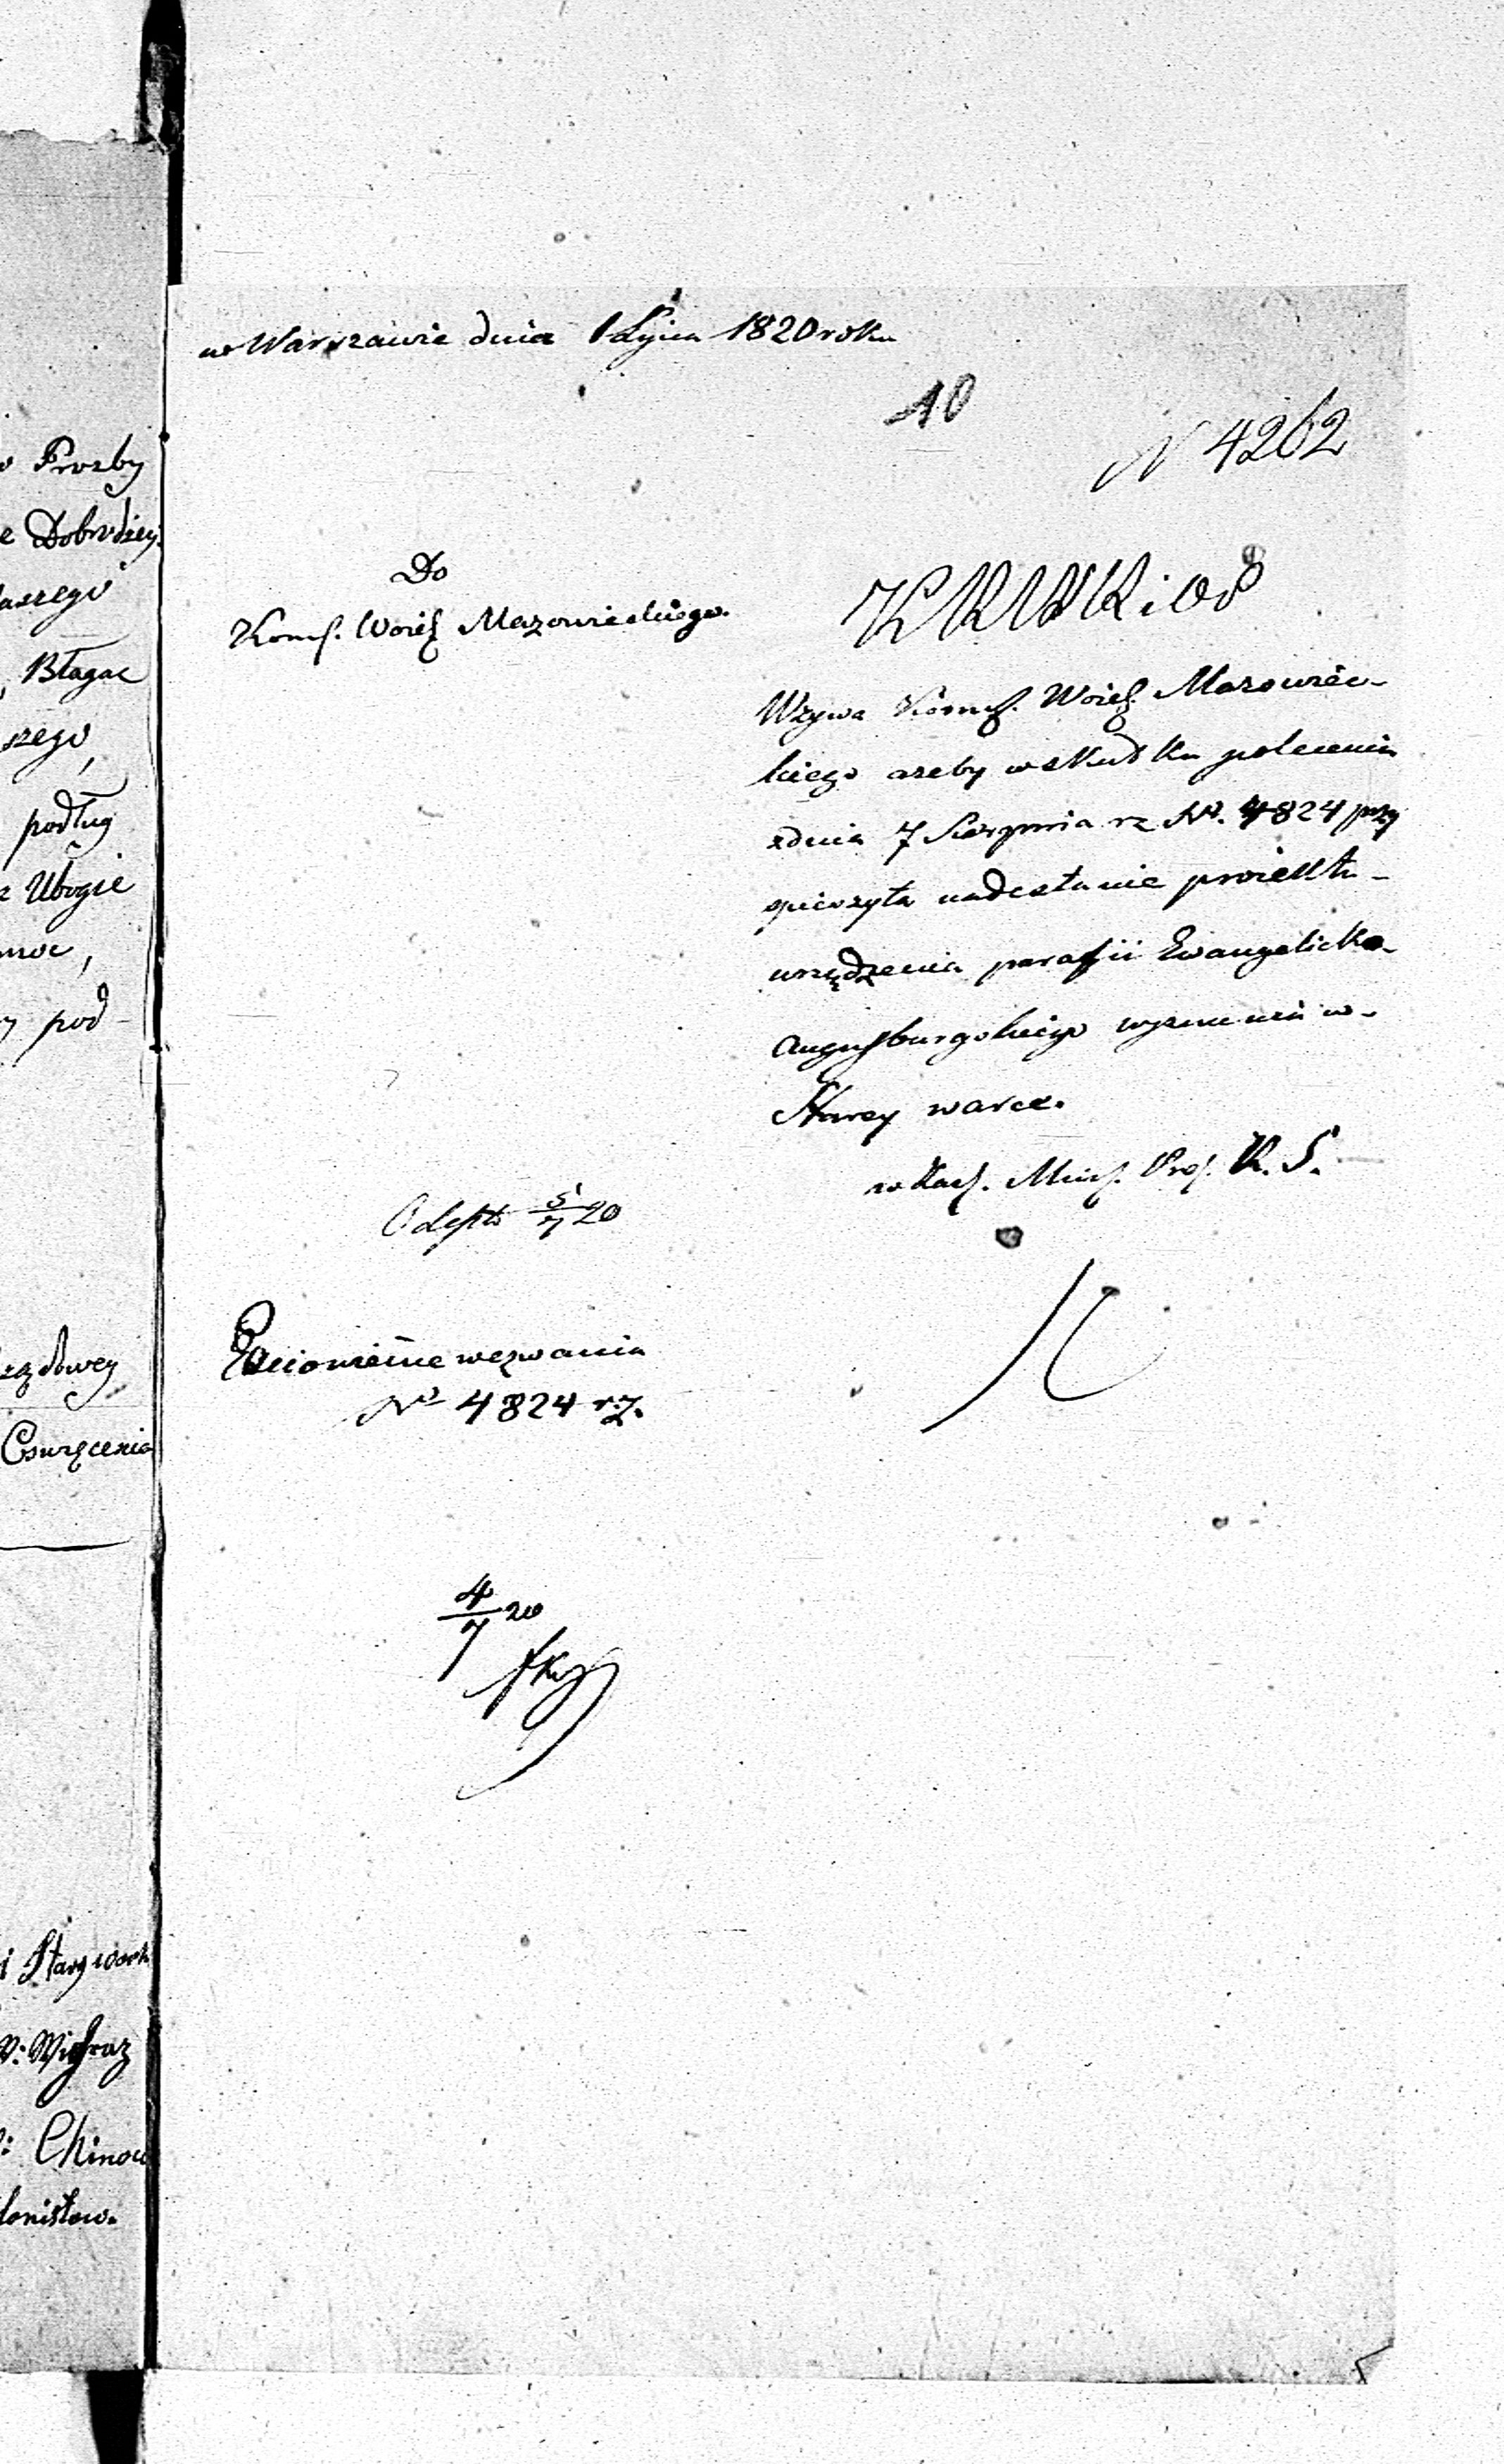 w Warszawie dnia 1 Lipca 1820 roku
10
N 4262
Do
Komſ. Woieẜ Mazowieckiego.
KRWRiOP
Wzywa Kommſ. Woieẜ. Mazowiec-
kiego azeby w skutku polecenia
z dnia 7 Sierpnia rz No. 4824 przy
spieszyła nadesłanie proiektu
urządzenia parafii Ewangelicko-
Augsburgskiego wyznania w
Starey warce.
w Zast. Min. Prez. R. S.
Odeszło 5/7 20
Ponowienie wezwania
No 4824 r.z.
4/7 20
Prozby
e Dobrodziey
aszego
, Błagac
szego,
podług
z Ubogie
moc,
pod
rządowey
i Stary wark
lonistow.